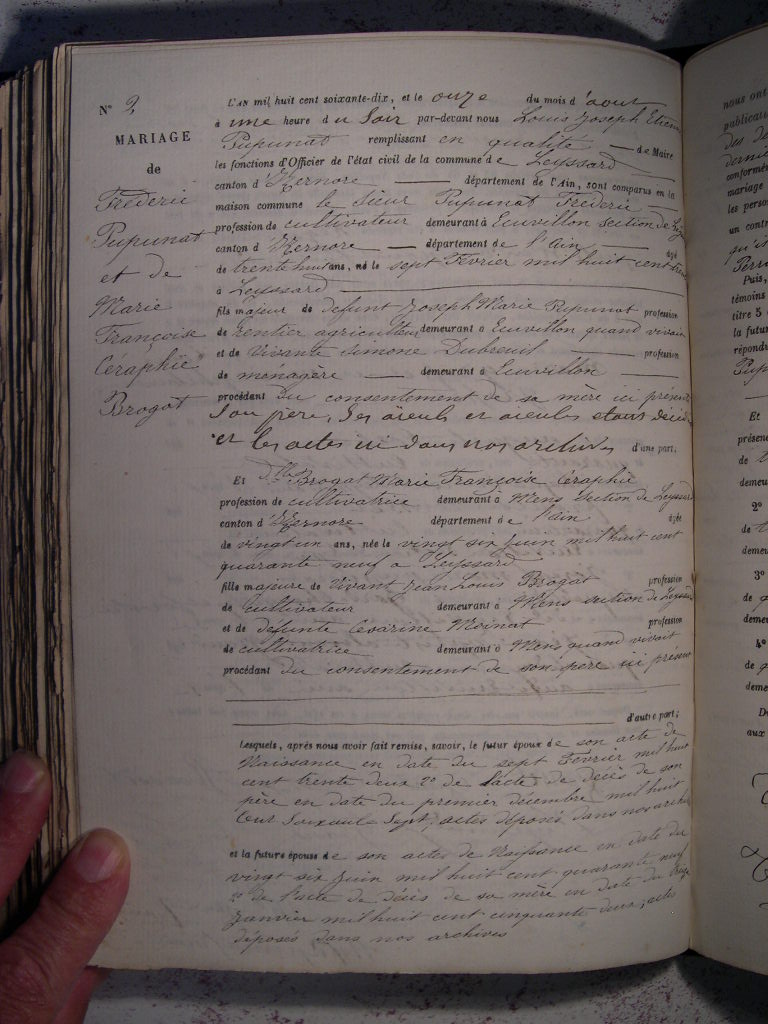 N° 2
MARIAGE
de
Fréderic
Pupunat
et de
Marie
Françoise
Céraphie
Brogat
L'AN mil huit cent soixante-dix, et le onze du mois d'aout
à une heure du Soir par-devant nous Louis Joseph Etienne
Pupunat remplissant en qualité de Maire
les fonctions d'Officier de l'état civil de la commune de Leyssard
canton d'Izernore département de l'Ain, sont comparus en la
maison commune le sieur Pupunat Fréderic
profession de cultivateur demeurant à Euvillon section de Ley
canton d'Izernore département de l'ain âgé
de trente huit ans, né le sept Fevrier mil huit cent trente
à Leyssard
fils majeur de defunt Joseph Marie Pupunat profession
de rentier agriculteur demeurant à Euvillon quand vivait
et de Vivante Simone Dubreuil profession
de ménagère demeurant à Euvillon
procédant du consentement de sa mère ici présente
Son père, Ses aïeuls et aieules étant décédés
et les actes ici dans nos archives d'une part;
Et Dlle Brogat Marie Françoise Céraphie
profession de cultivatrice demeurant à Mens Section de Leyssard
canton d'Izernore département de l'ain âgée
de vingt un ans, née le vingt six juin mil huit cent
quarante neuf a Leyssard
fille majeure de Vivant Jean Louis Brogat profession
de cultivateur demeurant à Mens section de Leyssard
et de défunte Césarine Moinat profession
de cultivatrice demeurant à Mens quand vivait
procédant du consentement de son père ici présent
d'autre part;
Lesquels, après nous avoir fait remise, savoir, le futur époux de son acte de
Naissance en date du sept Fevrier mil huit
cent trente deux 2° de l'acte de décès de son
père en date du premier décembre mil huit
cent Soixante Sept, actes déposés dans nos archi
et la future épouse de son actes de Naissance en date du
vingt six Juin mil huit cent quarante neuf
2° de l'acte de décès de sa mère en date du treize
Janvier mil huit cent cinquante deux, actes
déposés dans nos archives
nous ont
publicati
des de
dernie
conformém
mariage
les perso
un contr
qu'il
Perr
Puis,
témoins
titre 5
la futur
répondr
Pup
Et
présenc
de
demeu
2°
de
demeu
3°
de
demeu
4°
de
demeu
D
aux